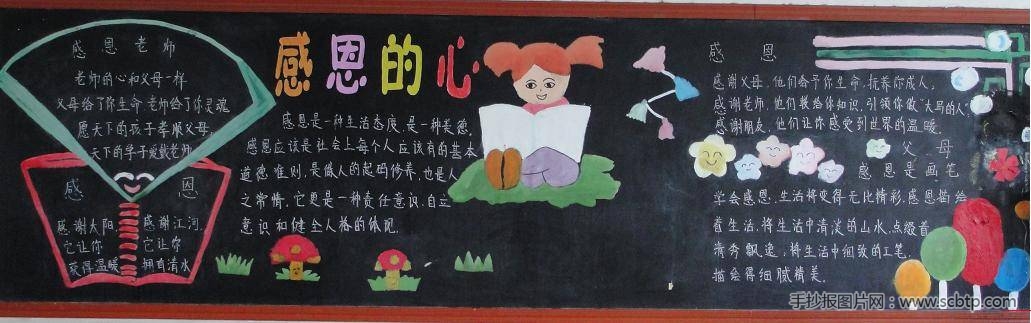 感恩老师
老师的心和父母一样
父母给了你生命,老师给了你灵魂
愿天下的孩子孝顺父母,
天下的学子爱戴老师
感恩
感谢太阳,
它让你
获得温暖
感谢江河,
它让你
拥有清水
感恩的心
感恩是一种生活态度,是一种美德,
感恩应该是社会上每个人应该有的基本
道德准则,是做人的起码修养,也是人
之常情。它更是一种责任意识、自立
意识和健全人格的体现。
感恩
感谢父母,他们给予你生命,抚养你成人。
感谢老师,他们教给你知识,引领你做“大写的人”。
感谢朋友,他们让你感受到世界的温暖。
父母
感恩是画笔
学会感恩,生活将变得无比精彩,感恩描绘
着生活,将生活中清淡的山水,点缀着
清秀飘逸,将生活中细致的工笔,
描绘得细腻精美。
手抄报图片网:www.scbtp.com